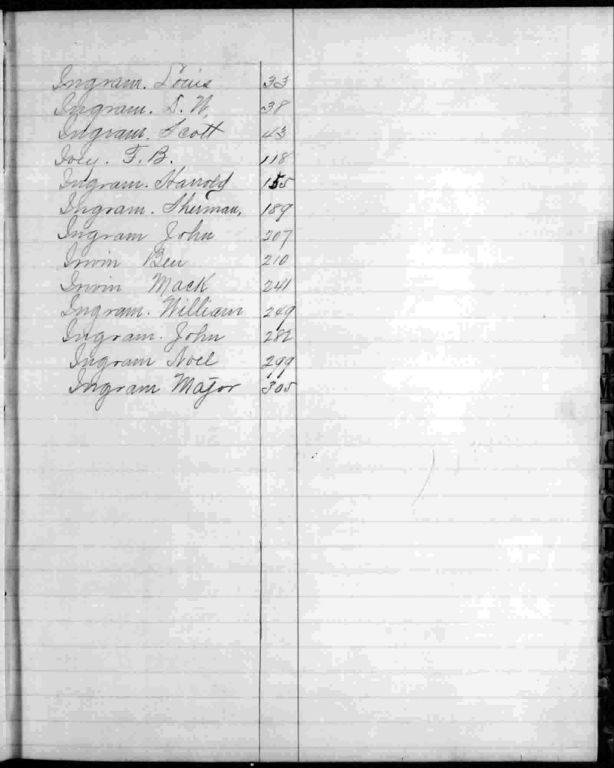 Ingram. Louis 33
Ingram. D. W. 38
Ingram. Scott 43
Ivey. F. B. 118
Ingram. Harrold 155
Ingram. Sherman, 189
Ingram John 207
Irvin Ben 210
Irvin Mack 241
Ingram. William 249
Ingram. John 282
Ingram Noel 299
Ingram Major 305